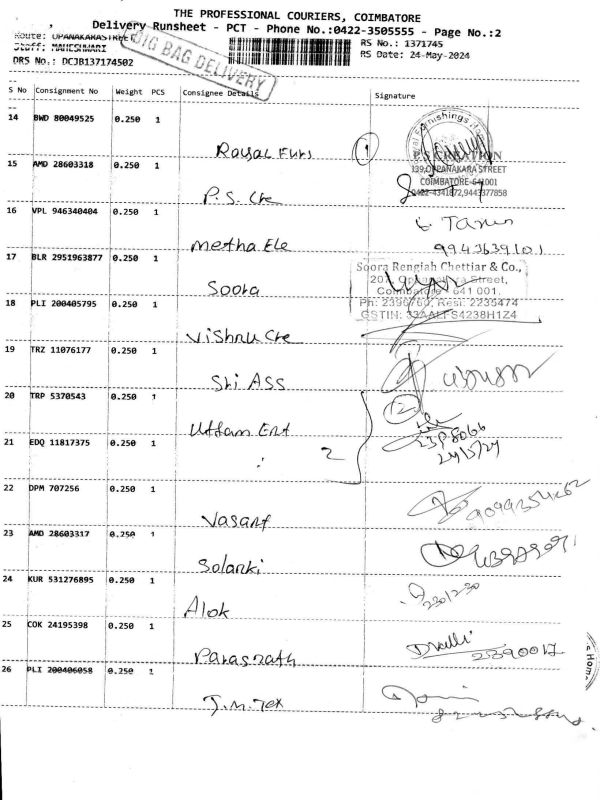 THE PROFESSIONAL COURIERS, COIMBATORE
Delivery Runsheet - PCT - Phone No.:0422-3505555 - Page No.:2
Route: OPANAKARASTREET
RS No.: 1371745
Staff: MAHESHWARI
RS Date: 24-May-2024
DRS No.: DCJB137174502
BIG BAG DELIVERY
S No Consignment No Weight PCS Consignee Details Signature
14 BWD 80049525 0.250 1
Royal Furs 1
15 AMD 28603318 0.250 1
139, OPPANAKARA STREET
COIMBATORE-641001
P.S. Cre
16 VPL 946340404 0.250 1
Metha Ele
9943639101
17 BLR 2951963877 0.250 1
Soora Rengiah Chettiar & Co.,
Street,
Coimbatore - 641 001.
Soora
18 PLI 200405795 0.250 1
Ph: 2396760, Resi: 2235474
GSTIN: 33AALFS4238H1Z4
Vishnu Cre
19 TRZ 11076177 0.250 1
Sri Ass
20 TRP 5370543 0.250 1
Uttam Ent
2
21 EDQ 11817375 0.250 1
24/5/24
22 DPM 707256 0.250 1
Vasant
23 AMD 28603317 0.250 1
Solanki
24 KUR 531276895 0.250 1
Alok
25 COK 24195398 0.250 1
Parasnath
2390017
26 PLI 200406058 0.250 1
J.M.Tex